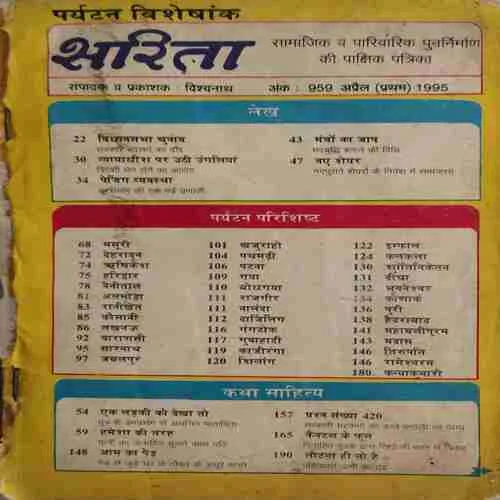 पर्यटन विशेषांक
सरिता
सामाजिक व पारिवारिक पुनर्निर्माण
की पाक्षिक पत्रिका
संपादक व प्रकाशक : विश्वनाथ
अंक : 959 अप्रैल (प्रथम) 1995
लेख
22 विधानसभा चुनाव
30 न्यायाधीश पर उठी उंगलियां
34 पेजिंग व्यवस्था
43 मंत्रों का जाप
47 नए शेयर
पर्यटन परिशिष्ट
68 मसूरी
72 देहरादून
74 ऋषिकेश
75 हरिद्वार
78 नैनीताल
81 अलमोड़ा
83 रानीखेत
85 कौसानी
86 लखनऊ
92 वाराणसी
95 सारनाथ
97 जबलपुर
101 खजुराहो
104 पचमढ़ी
106 पटना
109 गया
110 बोधगया
111 राजगीर
111 नालंदा
112 दार्जिलिंग
116 गंगटोक
117 गुवाहाटी
119 काजीरंगा
120 शिलांग
122 इम्फाल
124 कलकत्ता
130 शांतिनिकेतन
131 दीघा
132 भुवनेश्वर
134 कोणार्क
136 पुरी
138 हैदराबाद
141 महाबलीपुरम
143 मद्रास
146 तिरुपति
146 रामेश्वरम
180 कन्याकुमारी
कथा साहित्य
54 एक लड़की को देखा तो
59 हमेशा की तरह
148 आम का पेड़
157 प्रश्न संख्या 420
165 कैक्टस के फूल
190 लौटना ही तो है